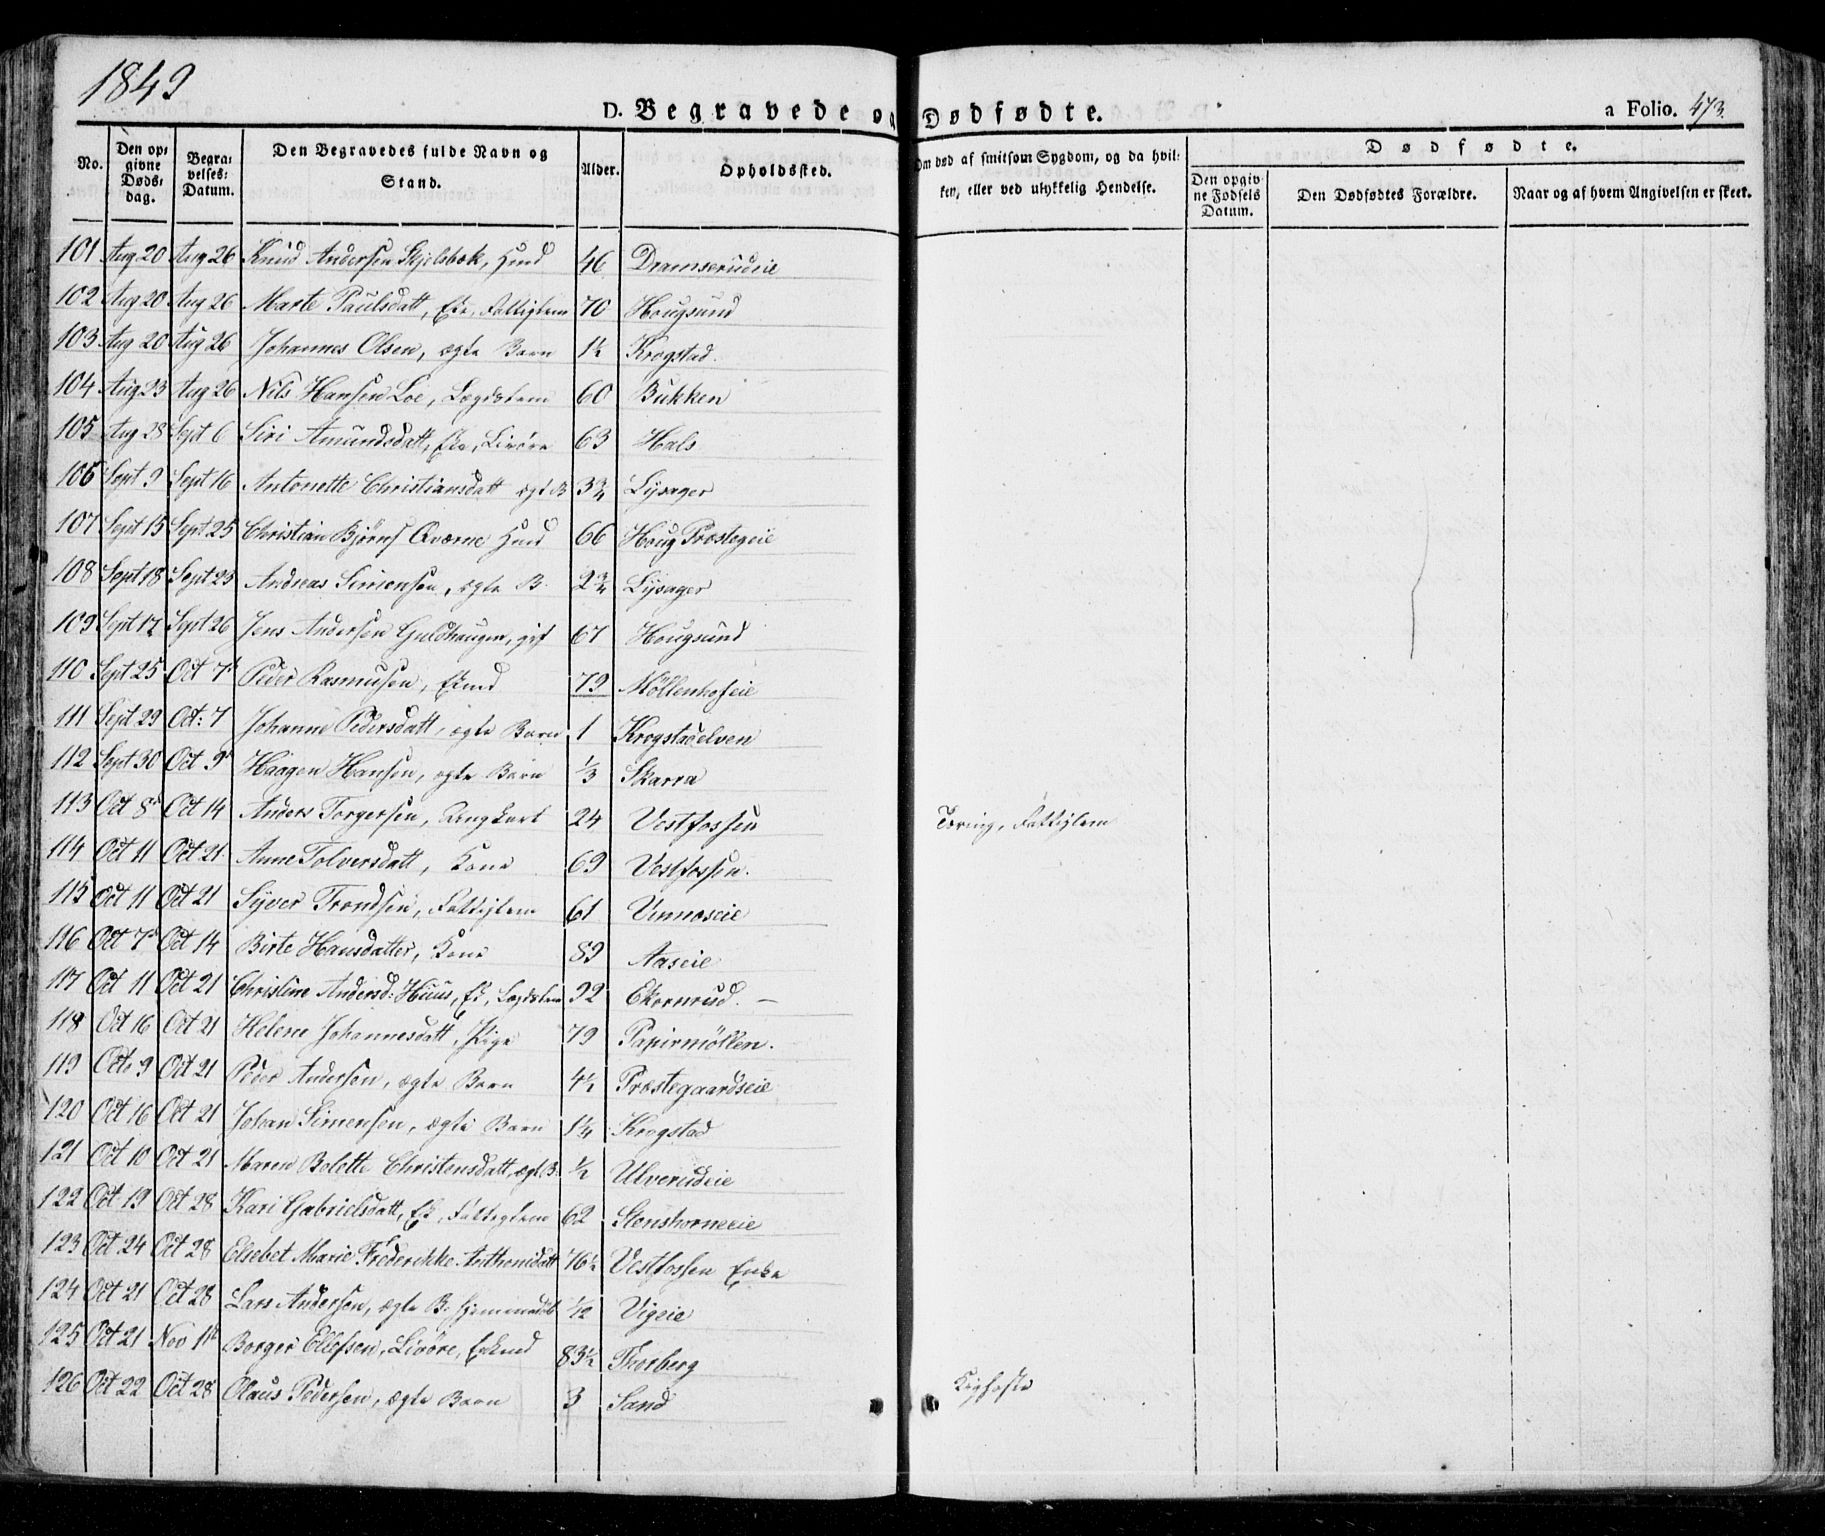 1849
D. Begravede og Dødfødte. a Folio. 473.
No. | Den opgivne Dødsdag. | Begravelses: Datum. | Den Begravedes fulde Navn og Stand. | Alder. | Opholdssted. | Om død af smitsom Sygdom, og da hvilken, eller ved ulykkelig Hendelse. | Dødfødte. | Den opgivne Fødsels Datum. | Den Dødfødtes Forældre. | Naar og af hvem Angivelsen er skeet.
101 Aug 20 Aug 26 Knud Andersen Skjelsbæk, Hmd 46 Dramserudeie
102 Aug 20 Aug 26 Marte Paulsdatt, Ek., Fattiglem 70 Hougsund
103 Aug 20 Aug 26 Johannes Olsen, ægte Barn 1½ Krogstad.
104 Aug 23 Aug 26 Nils Hansen Loe, Lægdslem 60 Bukken
105 Aug 28 Sept 6 Siri Amundsdatt, Ek, Livøre 63 Hals
106 Sept 9 Sept 16 Antonette Christiansdatt ægt B 3¾ Lysager
107 Sept 15 Sept 25 Christian Bjørns Qværne Hmd 66 Houg Præstegeie
108 Sept 18 Sept 25 Andreas Simensen, ægte B. 2¾ Lysager
109 Sept 17 Sept 26 Jens Andersen Guldhaugen, gift 67 Hougsund
110 Sept 25 Oct 7d Peder Rasmusen, Ekmd 79 Møllenhofeie
111 Sept 29 Oct: 7 Johanne Pedersdatt, ægte Barn 1 Krogstadelven
112 Sept 30 Oct 9d Haagen Hansen, ægte Barn ⅓ Skarra
113 Oct 8d Oct 14 Anders Torgersen, Ungkarl 24 Vestfossen Tæring, Fattiglem
114 Oct 11 Oct 21 Anne Tolversdatt, Kone 69 Vestfossen.
115 Oct 11 Oct 21 Syver Trondsen, Fattiglem 61 Vinnæseie
116 Oct 7d Oct 14 Birte Hansdatter, Kone 89 Aaseie
117 Oct 11 Oct 21 Christine Andersd: Huus, Ek, Lægdslem 92 Ekornrud. —
118 Oct 16 Oct 21 Helene Johannesdatt, Pige 79 Papirmøllen.
119 Oct. 9 Oct 21 Peder Andersen, ægte Barn 4½ Præstegaardseie
120 Oct 16 Oct 21 Johan Simensen, ægte Barn 1¼ Krogstad
121 Oct 10 Oct 21 Maren Bolette Christensdatt, ægt. B. ½ Ulverudeie
122 Oct 19 Oct 28 Kari Gabrielsdatt, Ek, Fattiglem 62 Stenshorneeie
123 Oct 24 Oct 28 Elsebet Marie Frederikke Anthonidatt 76½ Vestfossen Enke
124 Oct 21 Oct 28 Lars Andersen, ægte B. hjemmedøbt 1/12 Vigeie
125 Oct 21 Nov 11t Borger Ellefsen, Livøre, Enkmd 83½ Thorberg
126 Oct 22 Oct 28 Olaus Pedersen, ægte Barn 3 Sand Kighoste